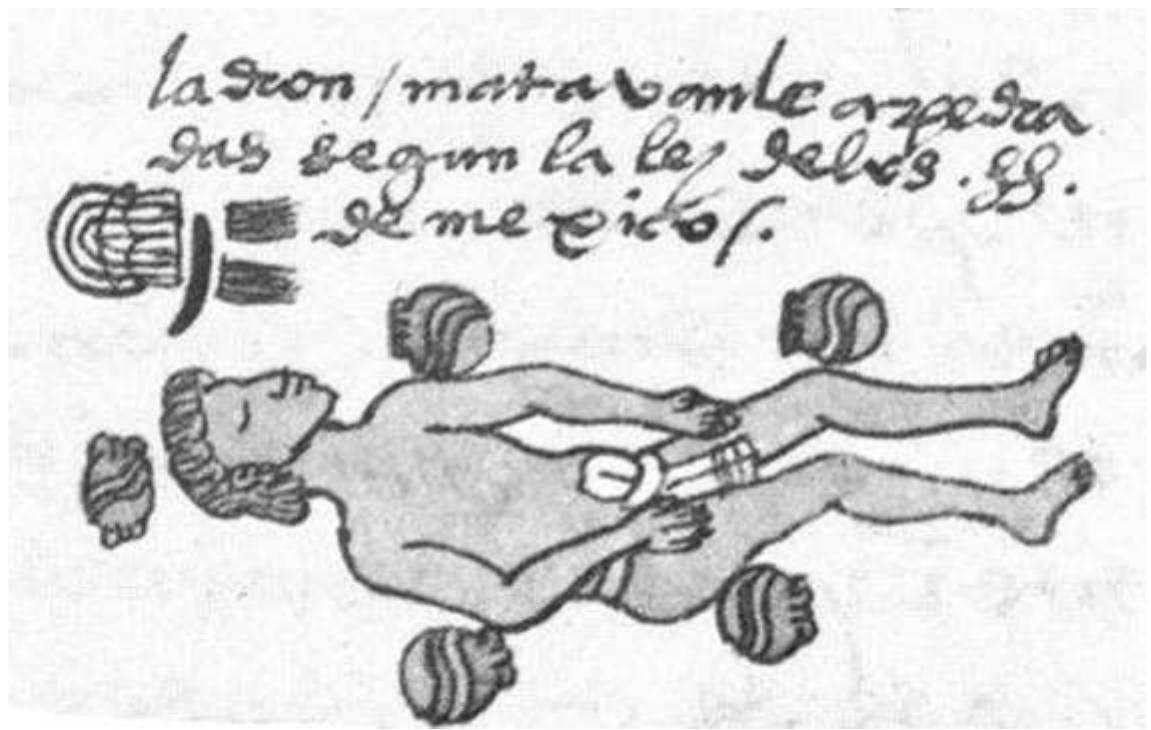 ladron / matavanle a pedra
das segun la ley delos .ss.
de mexico /.